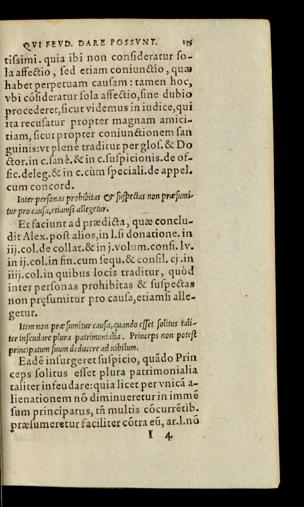 QVI FEVD. DARE POSSVNT. 135
tissimi. quia ibi non consideratur so-
la affectio, sed etiam coniunctio, quæ
habet perpetuam causam: tamen hoc,
vbi cósideratur sola affectio, sine dubio
procederet, sicut videmus in iudice, qui
ita recusatur propter magnam amici-
tiam, sicut propter coniunctionem san
guinis: vt plenè traditur per glos. & Do
ctor. in c. sanè. & in c. suspicionis. de of-
fic. deleg. & in c. cùm speciali. de appel.
cum concord.
Inter personas prohibitas & suspectas non præsumi-
tur pro causa, etiamsi allegetur.
Et faciunt ad prædicta, quæ conclu-
dit Alex. post alios, in l. si donatione. in
iij. col. de collat. & in j. volum. consi. lv.
in ij. col. in fin. cum sequ. & consil. cj. in
iiij. col. in quibus locis traditur, quòd
inter personas prohibitas & suspectas
non pręsumitur pro causa, etiamsi alle-
getur.
Item non præsumitur causa, quando esset solitus tali-
ter infeudare plura patrimonialia. Princeps non potest
principatum suum deducere ad nihilum.
Eadē insurgeret suspicio, quãdo Prin
ceps solitus esset plura patrimonialia
taliter infeudare: quia licet per vnicã a-
lienationem nõ diminueretur in immē
sum principatus, tñ multis cócurrētib.
præsumeretur faciliter cótra eũ, ar. l. nõ
I 4.